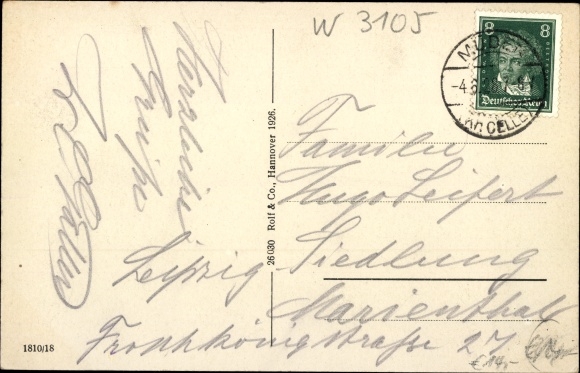 W 3105
8 8
Deutsches Reich
MÜDEN
-4.8.
(KR. CELLE)
Herzliche
Grüße
Familie
Hugo Leifert
Leipzig Siedlung
Marienthal
straße 27
26030 Rolf & Co., Hannover 1926.
1810/18
€ 14,-